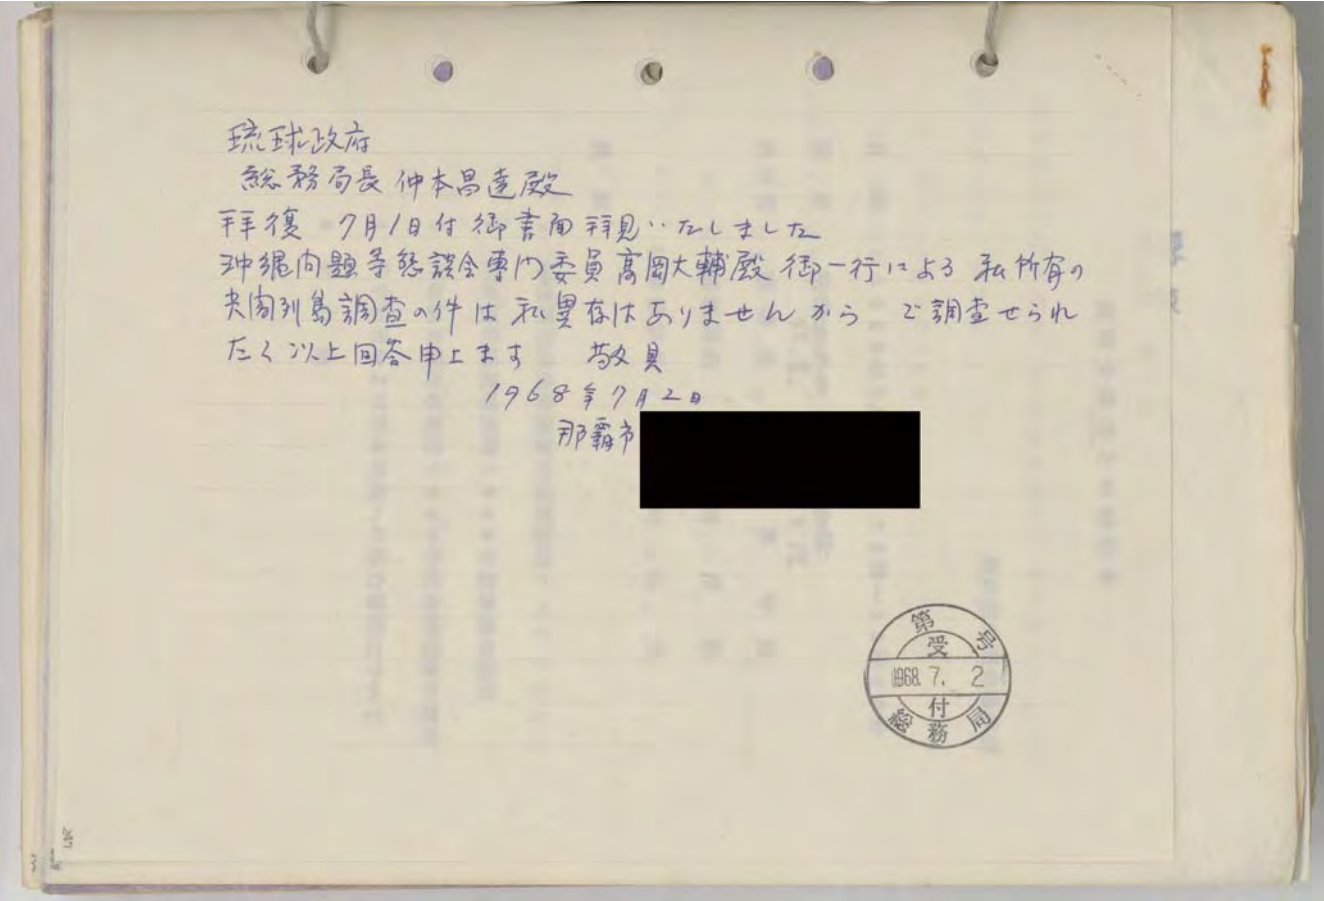 琉球政府
総務局長 仲本昌達殿
拝復 7月1日付御書面拝見いたしました
沖縄問題等懇談会専門委員高岡大輔殿御一行による私所有の
尖閣列島調査の件は私異存はありませんから ご調査せられ
たく以上回答申上ます 敬具
1968年7月2日
那覇市
第 号
受
1968. 7. 2
付
総務局
247